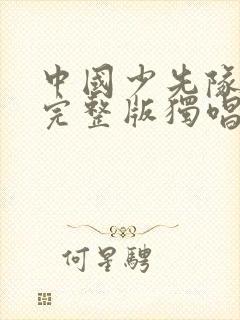 中國少先隊
完整版獨唱
何星騁